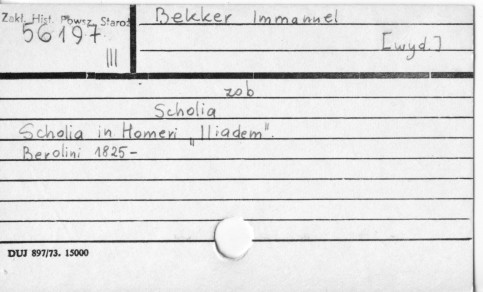 Zakł. Hist. Powsz. Staroż
56197
III
Bekker Immanuel
[wyd.]
zob
Scholia
Scholia in Homeri „Iliadem".
Berolini 1825-
DUJ 897/73. 15000